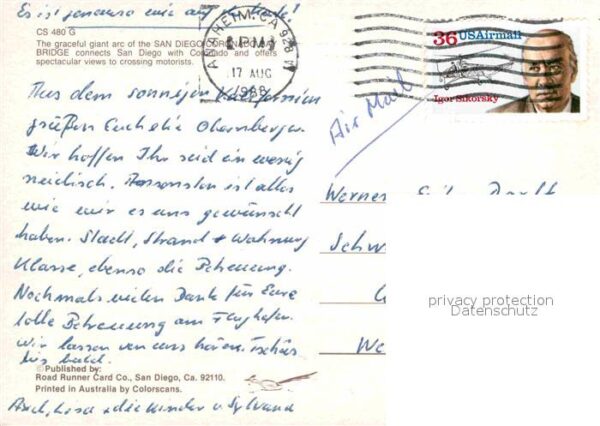 Es ist genauso wie auf der Karte!
CS 480 G
The graceful giant arc of the SAN DIEGO CORONADO BAY
BRIDGE connects San Diego with Coronado and offers
spectacular views to crossing motorists.
ANAHEIM, CA 928
PM
17 AUG
1988
36 USAirmail
Igor Sikorsky
Air Mail
Aus dem sonnigen Kalifornien
grüßen Euch die Obernberger.
Wir hoffen Ihr seid ein wenig
neidisch. Ansonsten ist alles
wie wir es uns gewünscht
haben. Stadt, Strand + Wohnung
Klasse, ebenso die Betreuung.
Nochmals vielen Dank für Eure
tolle Betreuung am Flughafen.
Wir lassen von uns hören. Tschüs
bis bald.
Werner
Schw
We
privacy protection
Datenschutz
©Published by:
Road Runner Card Co., San Diego, Ca. 92110.
Printed in Australia by Colorscans.
Lisa + die Kinder u. Sylvana